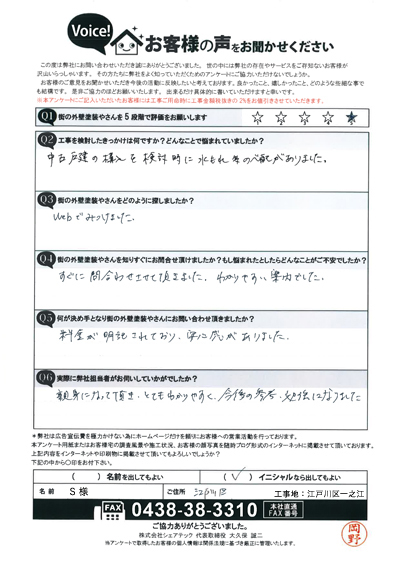 Voice!
お客様の声をお聞かせください
この度は弊社にお問い合わせいただき誠にありがとうございます。世の中には弊社の存在やサービスをご存知ないお客様が
沢山いらっしゃいます。その方たちに弊社をよく知っていただくためのアンケートにご協力いただけないでしょうか。
お客様のご意見をお聞かせいただき今後の活動に反映したいと考えております。良かったこと、嬉しかったこと、どのような些細な事で
も結構です。是非ご協力のほどお願いいたします。出来るだけ具体的に書いていただけますと幸いです。
※本アンケートにご記入いただいたお客様には工事ご用命時に工事金額税抜きの2%をお値引きさせていただきます。
Q1 街の外壁塗装やさんを5段階で評価をお願いします
☆1 ☆2 ☆3 ☆4 ★5
Q2 工事を検討したきっかけは何ですか?どんなことで悩まれていましたか?
中古戸建の購入を検討時に水もれ等の心配がありました。
Q3 街の外壁塗装やさんをどのように探しましたか?
webでみつけました。
Q4 街の外壁塗装やさんを知りすぐにお問合せ頂けましたか?もし悩まれたとしたらどんなことがご不安でしたか?
すぐに問合わせさせて頂きました。わかりやすい案内でした。
Q5 何が決め手となり街の外壁塗装やさんにお問い合わせ頂きましたか?
料金が明記されており、安心感がありました。
Q6 実際に弊社担当者がお伺いしていかがでしたか?
親身になって頂き、とてもわかりやすく、今後の参考、勉強になりました
＊弊社は広告宣伝費を極力かけない為にホームページだけを頼りにお客様への営業活動を行っております。
本アンケート用紙またはお客様宅の調査風景や施工状況、お客様の顔写真を随時ブログ形式のインターネットに掲載させて頂いております。
上記内容をインターネットや印刷物に掲載させて頂いてもよろしいでしょうか?
下記の中から〇印をお付下さい。
( )名前を出してもよい (✓)イニシャルなら出してもよい
名前 S様 ご住所 江戸川区 工事地:江戸川区一之江
FAX 0438-38-3310 本社直通FAX番号
ご協力ありがとうございました。
株式会社シェアテック 代表取締役 大久保 誠二
当アンケートで取得したお客様の個人情報は関係法規に基づき厳正に管理いたします。
岡野